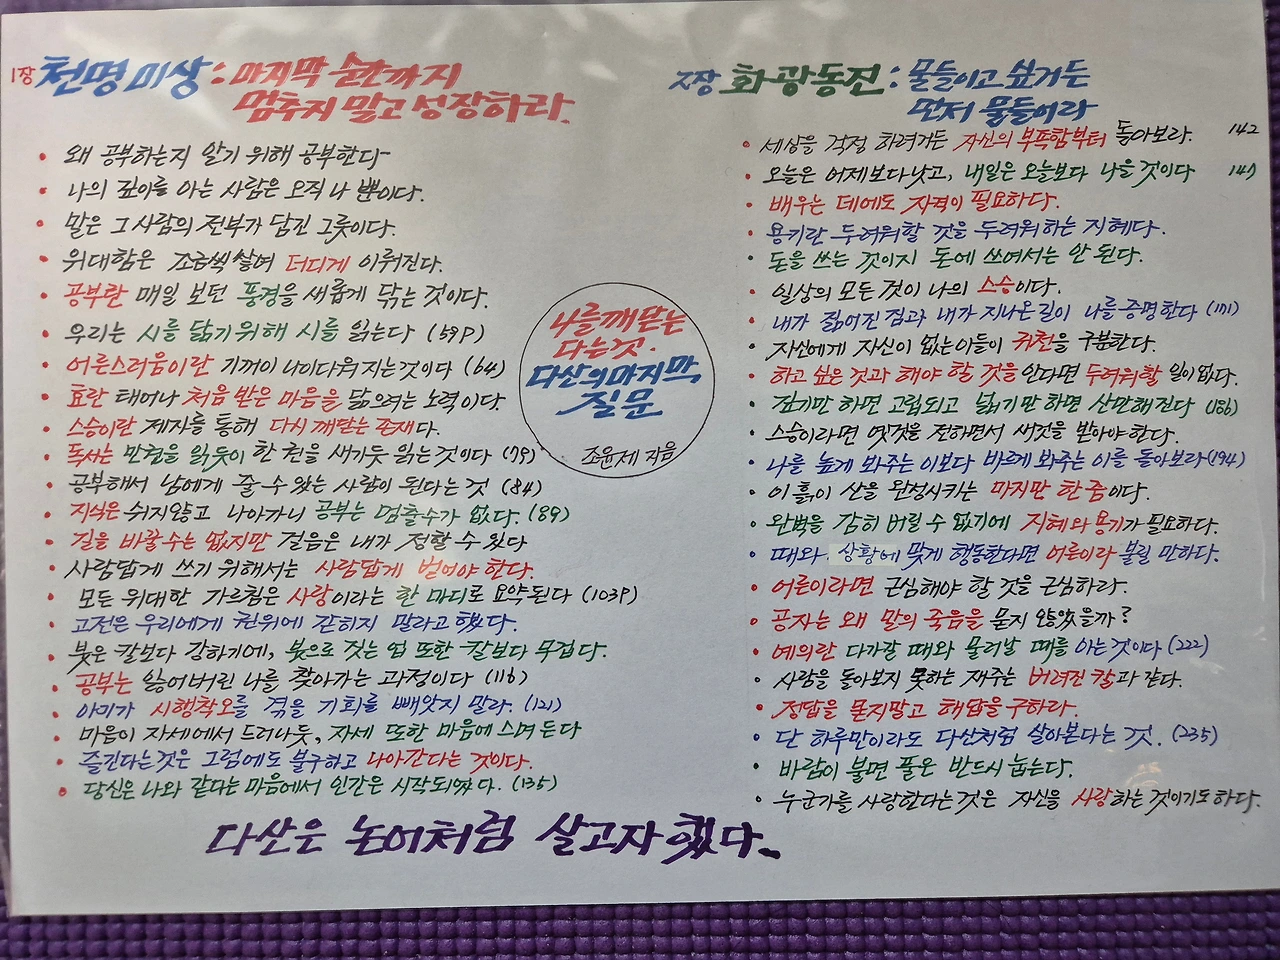 1장 천명미상 : 마지막 순간까지
멈추지 말고 성장하라.
• 왜 공부하는지 알기 위해 공부한다
• 나의 깊이를 아는 사람은 오직 나 뿐이다.
• 말은 그 사람의 전부가 담긴 그릇이다.
• 위대함은 조금씩 쌓여 더디게 이뤄진다.
• 공부란 매일 보던 풍경을 새롭게 닦는 것이다.
• 우리는 시를 닮기 위해 시를 읽는다 (59P)
• 어른스러움이란 기꺼이 나이다워지는것이다 (64)
• 효란 태어나 처음 받은 마음을 닮으려는 노력이다.
• 스승이란 제자를 통해 다시 깨닫는 존재다.
• 독서는 만권을 읽듯이 한 권을 새기듯 읽는 것이다 (79)
• 공부해서 남에게 줄 수 있는 사람이 된다는 것 (84)
• 지식은 쉬지않고 나아가니 공부는 멈출수가 없다. (89)
• 길을 바꿀 수는 없지만 걸음은 내가 정할 수 있다
• 사람답게 쓰기 위해서는 사람답게 벌어야 한다.
• 모든 위대한 가르침은 사랑이라는 한 마디로 요약된다 (103P)
• 고전은 우리에게 권위에 갇히지 말라고 했다.
• 붓은 칼보다 강하기에, 붓으로 짓는 업 또한 칼보다 무겁다.
• 공부는 잃어버린 나를 찾아가는 과정이다 (116)
• 아끼가 시행착오를 겪을 기회를 빼앗지 말라. (121)
• 마음이 자세에서 드러나듯, 자세 또한 마음에 스며 든다
• 즐긴다는것은 그럼에도 불구하고 나아간다는 것이다.
• 당신은 나와 같다는 마음에서 인간은 시작되었다. (135)
나를 깨닫는
다는것.
다산의마지막
질문
조윤제 지음
2장 화광동진 : 물들이고 싶거든
먼저 물들이라
• 세상을 걱정 하려거든 자신의 부족함부터 돌아보라. 142
• 오늘은 어제보다낫고, 내일은 오늘보다 나을 것이다 147
• 배우는 데에도 자격이 필요하다.
• 용기란 두려워할 것을 두려워하는 지혜다.
• 돈을 쓰는 것이지 돈에 쓰여서는 안 된다.
• 일상의 모든 것이 나의 스승이다.
• 내가 짊어진 짐과 내가 지나온 길이 나를 증명한다 (171)
• 자신에게 자신이 없는이들이 귀천을 구분한다.
• 하고 싶은 것과 해야 할 것을 안다면 두려워할 일이 없다.
• 깊기만 하면 고립되고 넓기만 하면 산만해진다 (186)
• 스승이라면 옛것을 전하면서 새것을 받아야 한다.
• 나를 높게 봐주는 이보다 바르게 봐주는 이를 돌아보라 (194)
• 이 흙이 산을 완성시키는 마지막 한 줌이다.
• 완벽을 감히 버릴 수 없기에 지혜와 용기가 필요하다.
• 때와 상황에 맞게 행동한다면 어른이라 불릴 만하다.
• 어른이라면 근심해야 할 것을 근심하라.
• 공자는 왜 말의 죽음을 묻지 않았을까?
• 예의란 다가갈 때와 물러날 때를 아는 것이다 (222)
• 사람을 돌아보지 못하는 재주는 버려진 칼과 같다.
• 정답을 묻지말고 해답을 구하라.
• 단 하루만이라도 다산처럼 살아본다는 것. (235)
• 바람이 불면 풀은 반드시 눕는다.
• 누군가를 사랑한다는 것은 자신을 사랑하는 것이기도 하다.
다산은 논어처럼 살고자 했다.